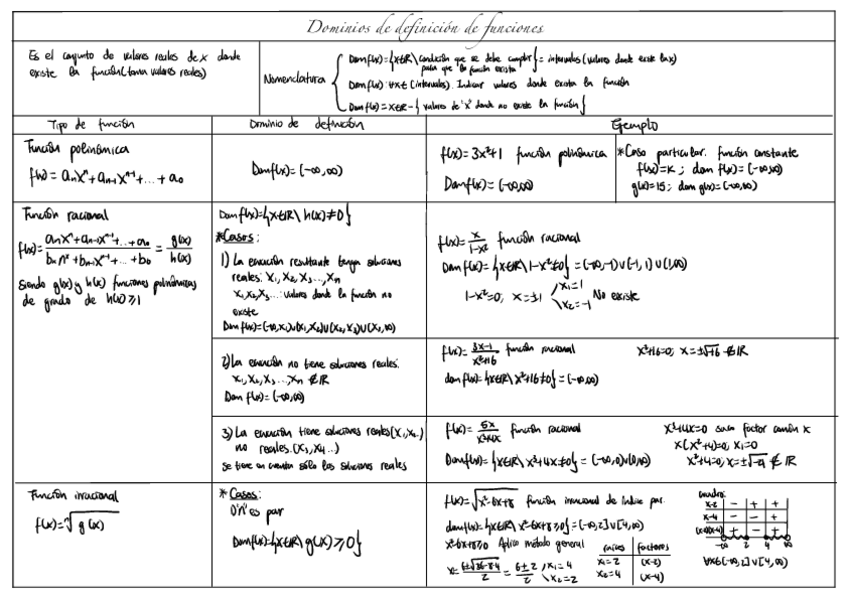 Dominios de definición de funciones
Es el conjunto de valores reales de x donde
existe la función (toma valores reales)
Nomenclatura
Domf(x)={x∈R\condición que se debe cumplir
para que la función exista}= intervalos (valores donde existe f(x))
Domf(x): ∀x∈(intervalos). Indicar valores donde exista la función
Domf(x)=x∈R-{valores de 'x' donde no existe la función}
Tipo de función
Dominio de definición
Ejemplo
Función polinómica
f(x)= aₙxⁿ+aₙ₋₁xⁿ⁻¹+...+a₀
Domf(x)=(-∞,∞)
f(x)=3x²+1 función polinómica
Domf(x)=(-∞,∞)
*Caso particular. función constante
f(x)=K ; dom f(x)=(-∞,∞)
g(x)=15; dom g(x)=(-∞,∞)
Función racional
f(x)= aₙxⁿ+aₙ₋₁xⁿ⁻¹+...+a₀ / bₙnˣ+bₙ₋₁xⁿ⁻¹+...+b₀ = g(x)/h(x)
Siendo g(x) y h(x) funciones polinómicas
de grado de h(x)≥1
Domf(x)={x∈R\ h(x)≠0}
*Casos:
1) La ecuación resultante tenga soluciones
reales: x₁, x₂, x₃...,xₙ
x₁,x₂,x₃...: valores donde la función no
existe
Domf(x)=(-∞,x₁)∪(x₁,x₂)∪(x₂,x₃)∪(x₃,∞)
f(x)= x/1-x² función racional
Domf(x)={x∈R\1-x²≠0}=(-∞,-1)∪(-1,1)∪(1,∞)
1-x²=0, x=±1 x₁=1 x₂=-1 No existe
2) La ecuación no tiene soluciones reales:
x₁,x₂,x₃...,xₙ ∉R
Domf(x)=(-∞,∞)
f(x)= 3x-1/x²+16 función racional
x²+16=0; x=±√-16 ∉R
domf(x)={x∈R\x²+16≠0}=(-∞,∞)
3) La ecuación tiene soluciones reales(x₁,x₂..)
no reales.(x₃,x₄...)
se tiene en cuenta sólo las soluciones reales
f(x)= 5x/x³+4x función racional
Domf(x)={x∈R\x³+4x≠0}=(-∞,0)∪(0,∞)
x³+4x=0 saco factor común x
x(x²+4)=0, x₁=0
x²+4=0, x=±√-4 ∉ R
Función irracional
f(x)=ⁿ√g(x)
*Casos:
○'n' es par
Domf(x)={x∈R\g(x)≥0}
f(x)=√x²-6x+8 función irracional de índice par.
domf(x)={x∈R\x²-6x+8≥0}=(-∞,2]∪[4,∞)
x²-6x+8≥0 Aplico método general
x= 6±√36-8·4/2 = 6±2/2 x₁=4 x₂=2
raíces factores
x₁=2 (x-2)
x₂=4 (x-4)
cuadro:
x-2 - + +
x-4 - - +
(x-2)(x-4) + - +
-∞ 2 4 ∞
∀x∈(-∞,2]∪[4,∞)